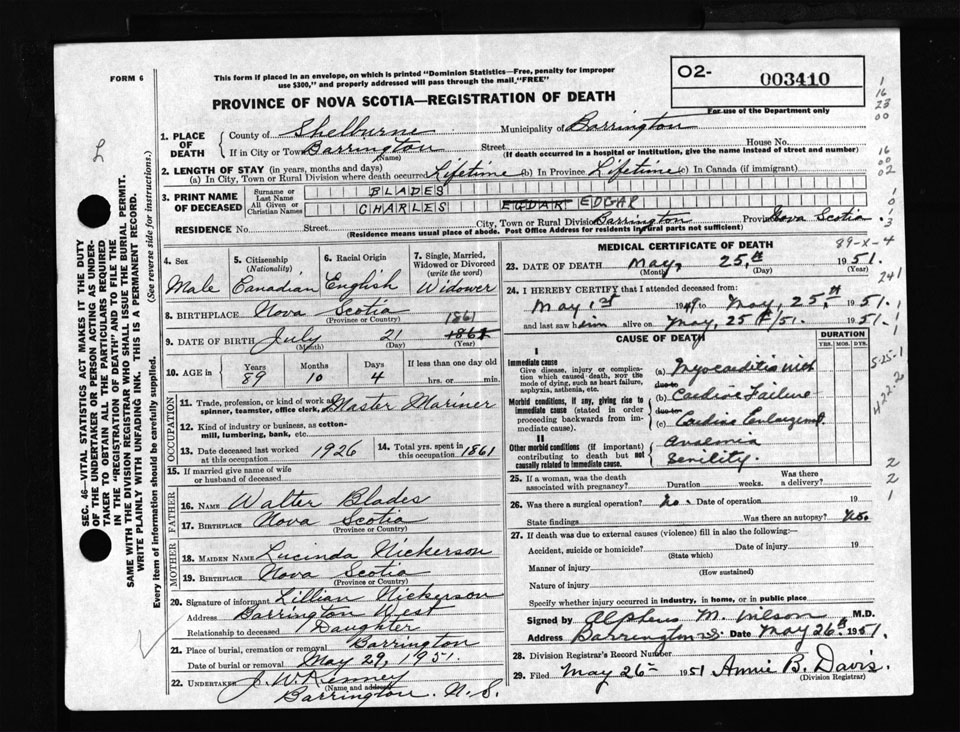 FORM 6
This form if placed in an envelope, on which is printed "Dominion Statistics—Free, penalty for improper
use $300," and properly addressed will pass through the mail "FREE"
O2- 003410
For use of the Department only
PROVINCE OF NOVA SCOTIA—REGISTRATION OF DEATH
1. PLACE OF DEATH
County of Shelburne Municipality of Barrington
If in City or Town Barrington Street House No.
(Name) (If death occurred in a hospital or institution, give the name instead of street and number)
2. LENGTH OF STAY (in years, months and days)
(a) In City, Town or Rural Division where death occurred Lifetime (b) In Province Lifetime (c) In Canada (if immigrant)
3. PRINT NAME OF DECEASED
Surname or Last Name BLADES
All Given or Christian Names CHARLES EGDART EDGAR
RESIDENCE No. Street City, Town or Rural Division Barrington Province Nova Scotia
(Residence means usual place of abode. Post Office Address for residents in rural parts not sufficient)
4. Sex Male
5. Citizenship (Nationality) Canadian
6. Racial Origin English
7. Single, Married, Widowed or Divorced (write the word) Widower
8. BIRTHPLACE Nova Scotia
(Province or Country)
1861
9. DATE OF BIRTH July 21
(Month) (Day) (Year)
10. AGE in Years 89 Months 10 Days 4 If less than one day old hrs. or min.
OCCUPATION
11. Trade, profession, or kind of work as spinner, teamster, office clerk, Master Mariner
12. Kind of industry or business, as cotton-mill, lumbering, bank, etc.
13. Date deceased last worked at this occupation 1926
14. Total yrs. spent in this occupation 1861
15. If married give name of wife or husband of deceased
FATHER
16. NAME Walter Blades
17. BIRTHPLACE Nova Scotia
(Province or Country)
MOTHER
18. MAIDEN NAME Lucinda Nickerson
19. BIRTHPLACE Nova Scotia
(Province or Country)
20. Signature of informant Lillian Nickerson
Address Barrington West
Relationship to deceased Daughter
21. Place of burial, cremation or removal Barrington
Date of burial or removal May 29, 1951.
22. UNDERTAKER J. W. Kenney
(Name and address)
Barrington. N.S.
MEDICAL CERTIFICATE OF DEATH
89-X-4
23. DATE OF DEATH May, 25th 1951.
(Month) (Day) (Year)
24. I HEREBY CERTIFY that I attended deceased from:
May 1st 1949 to May, 25th 1951.
and last saw him alive on May, 25th/51. 1951.
CAUSE OF DEATH
DURATION
YRS. MOS. DYS.
I
Immediate cause
Give disease, injury or complication which caused death, not the mode of dying, such as heart failure, asphyxia, asthenia, etc.
(a) Myocarditis with
due to
Morbid conditions, if any, giving rise to immediate cause (stated in order proceeding backwards from immediate cause).
(b) Cardiac Failure
due to
(c) Cardiac Enlargement
II
Other morbid conditions (if important) contributing to death but not causally related to immediate cause.
Anaemia
Senility.
25. If a woman, was the death associated with pregnancy? Duration weeks. Was there a delivery?
26. Was there a surgical operation? no. Date of operation 19
State findings Was there an autopsy? no.
27. If death was due to external causes (violence) fill in also the following:—
Accident, suicide or homicide? Date of injury 19
(State which)
Manner of injury
(How sustained)
Nature of injury
Specify whether injury occurred in industry, in home, or in public place
Signed by Alpheus M. Wilson M.D.
Address Barrington N.S. Date May 26th 1951.
28. Division Registrar's Record Number
29. Filed May 26 1951 Annie B. Davis.
(Division Registrar)
SEC. 46—VITAL STATISTICS ACT MAKES IT THE DUTY
OF THE UNDERTAKER OR PERSON ACTING AS UNDER-
TAKER TO OBTAIN ALL THE PARTICULARS REQUIRED
IN THE "REGISTRATION OF DEATH" AND TO FILE THE
SAME WITH THE DIVISION REGISTRAR WHO SHALL ISSUE THE BURIAL PERMIT.
WRITE PLAINLY WITH UNFADING INK. THIS IS A PERMANENT RECORD.
Every item of information should be carefully supplied. (See reverse side for instructions.)
1
16
23
00
16
00
02
241
5-25-1
422-2
2
2
1